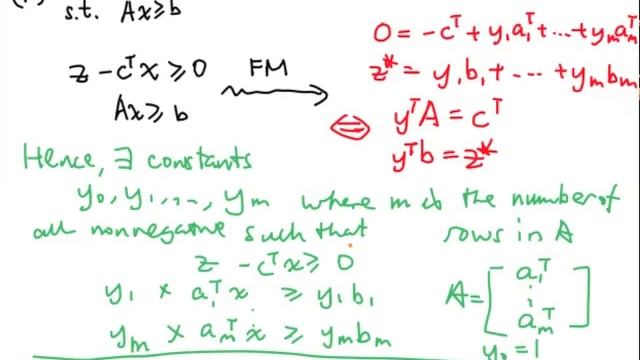 s.t. Ax ≥ b
z - cᵀx ≥ 0
Ax ≥ b
FM
0 = -cᵀ + y₁a₁ᵀ + ... + yₘaₘᵀ
z* = y₁b₁ + ... + yₘbₘ
⇔ yᵀA = cᵀ
yᵀb = z*
Hence, ∃ constants
y₀, y₁, ..., yₘ where m is the number of
all nonnegative such that rows in A
z - cᵀx ≥ 0
y₁ × a₁ᵀx ≥ y₁b₁
yₘ × aₘᵀx ≥ yₘbₘ
A = [a₁ᵀ
⋮
aₘᵀ]
y₀ = 1